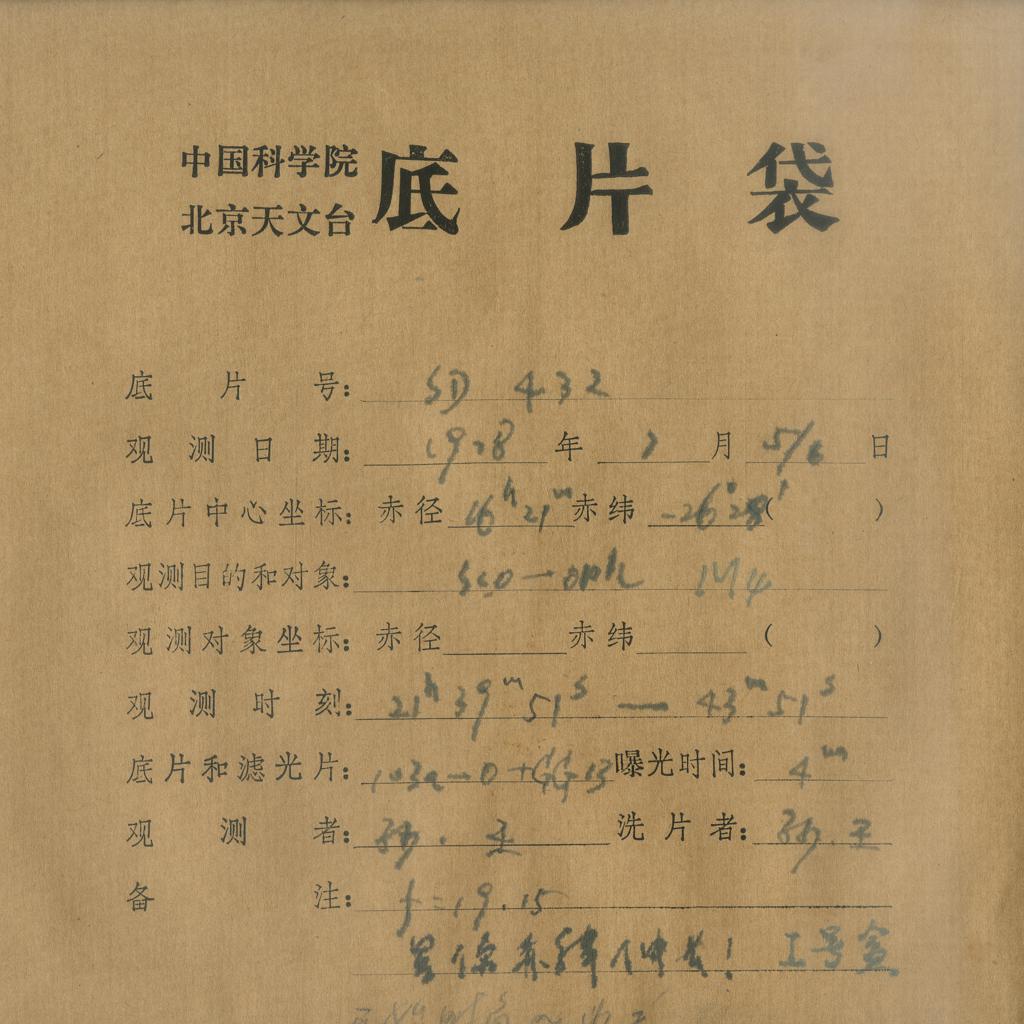 中国科学院
北京天文台
底片袋
底片号: SD 432
观测日期: 1978 年 7 月 5/6 日
底片中心坐标: 赤径 16h21m 赤纬 -26°28′ ( )
观测目的和对象: SCO-OPH M4
观测对象坐标: 赤径 赤纬 ( )
观测时刻: 21h39m51s — 43m51s
底片和滤光片: 103a-O+GG13 曝光时间: 4m
观测者: 孙.王 洗片者: 孙.王
备注: f=19.15
星像赤纬伸长! 工号盒